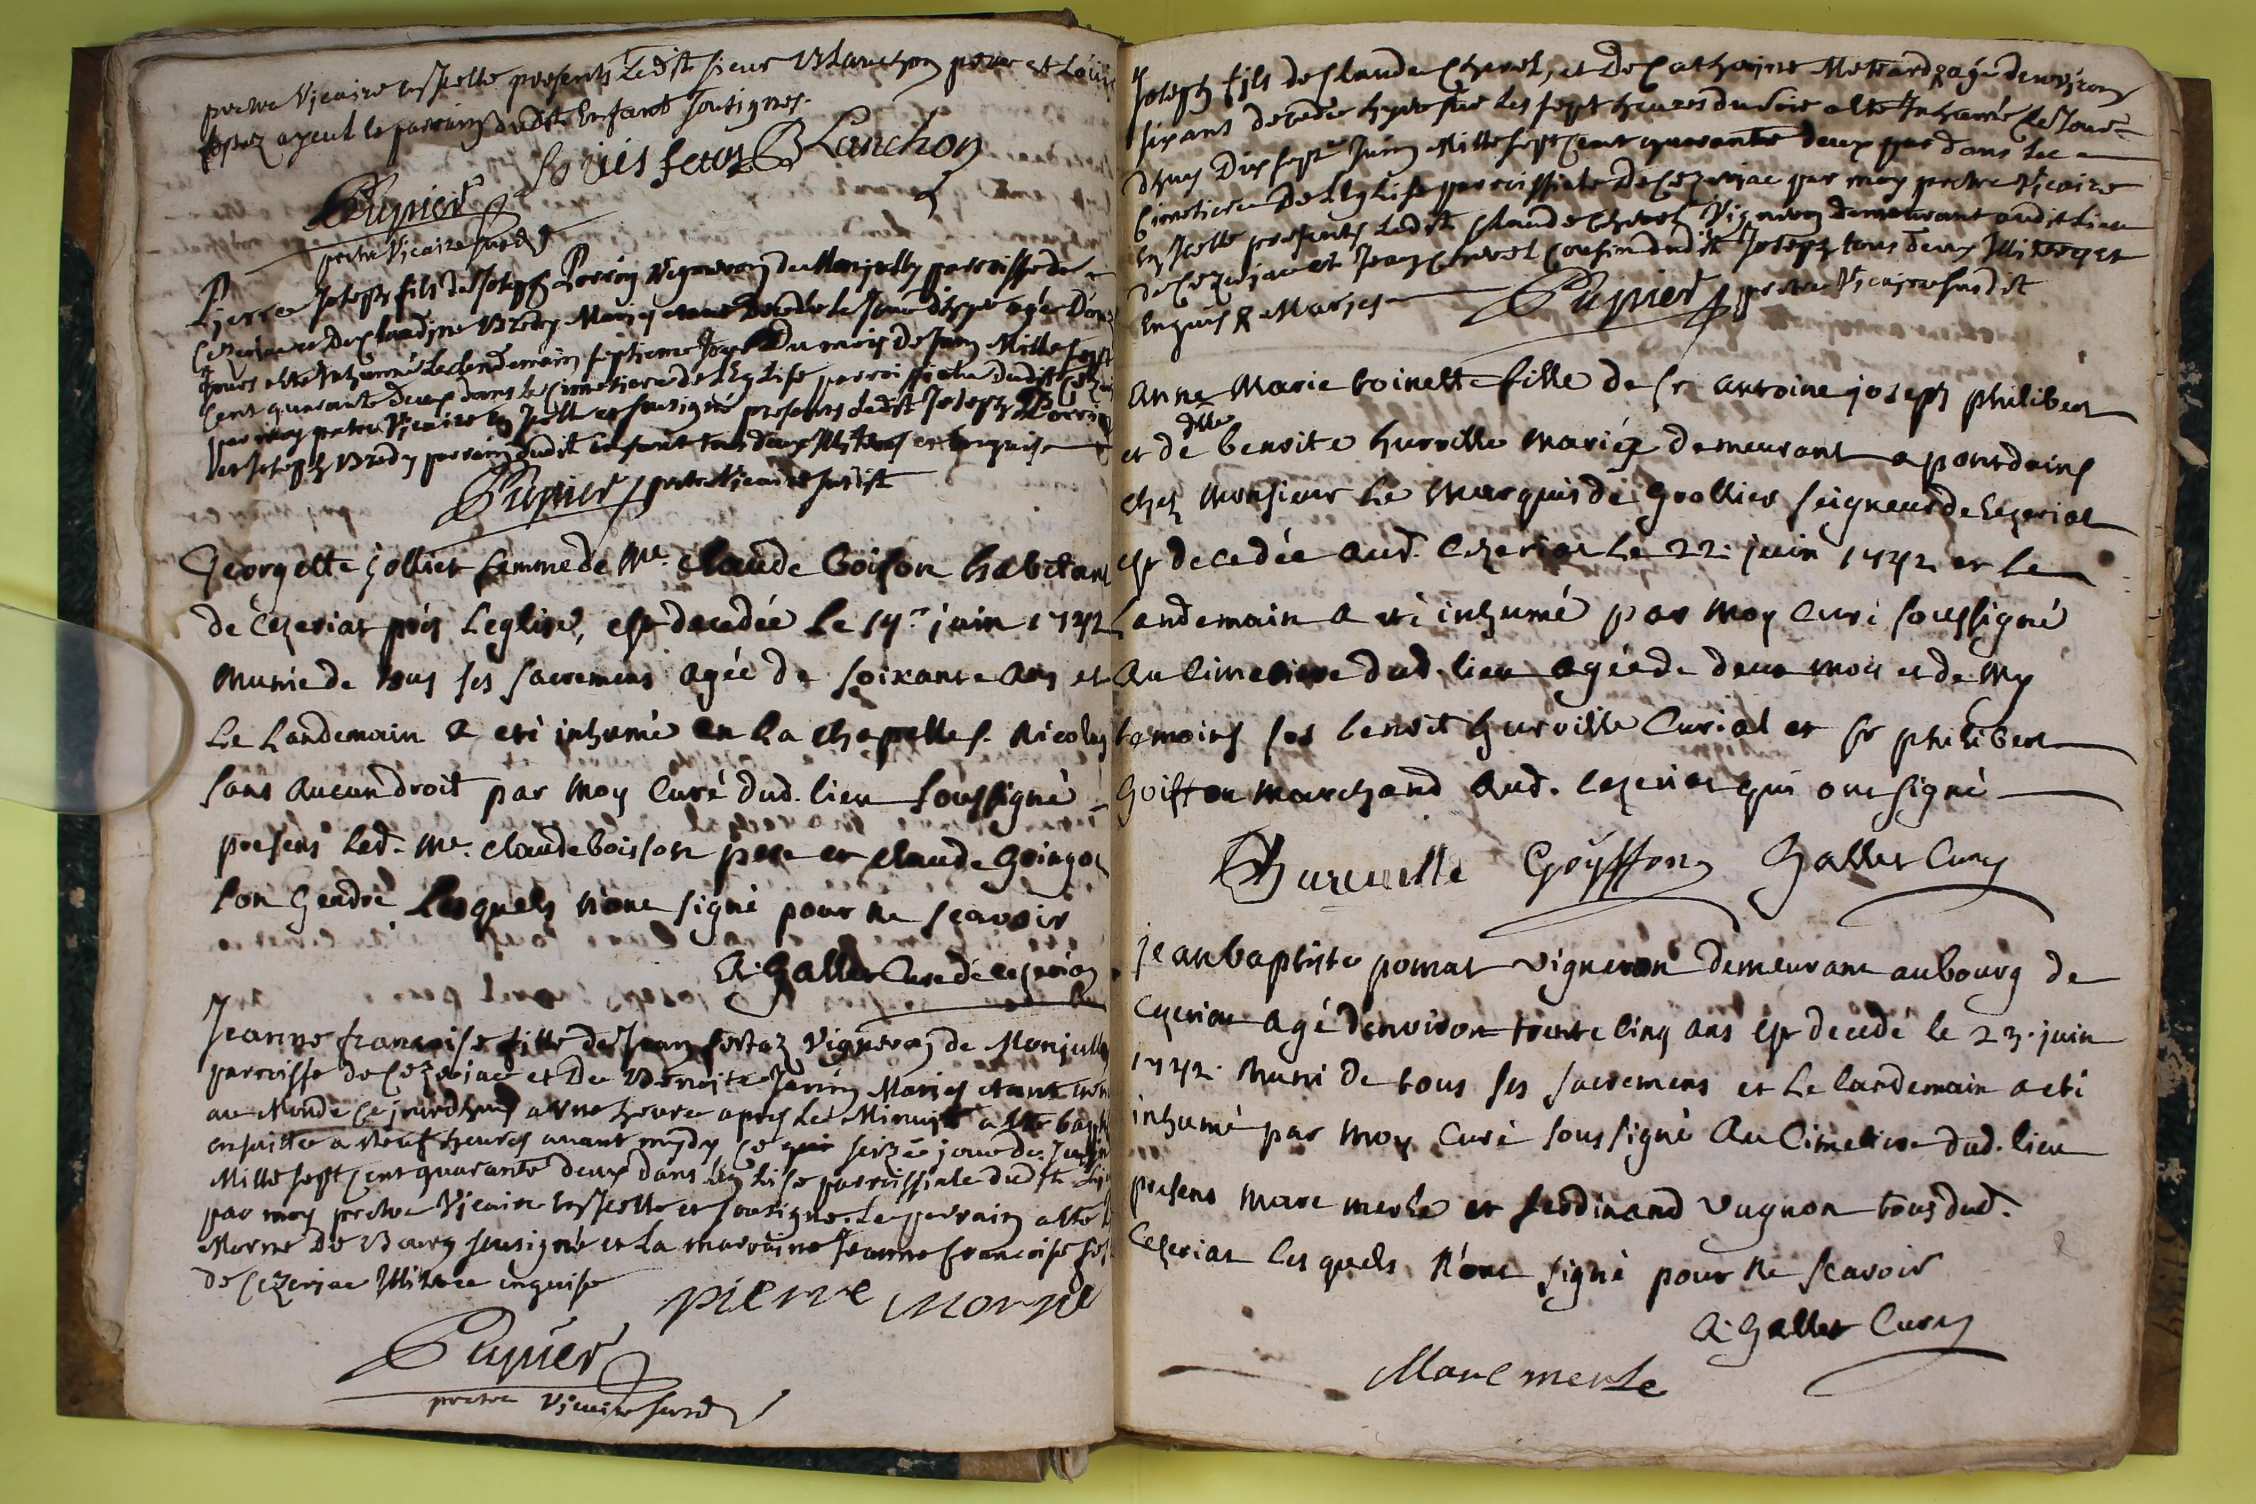 pretre Vicaire presents Ledit sieur Blanchon pere et Louis
ayeul le parrain dudit Enfant sousignes.
Louis fetaz Blanchon
Pupier
pretre Vicaire susd
Pierre Joseph fils de Joseph Perrin Vigneron de Monjully parroisse de
Cezeriac et De Claudine Bredy Maries etant Decedée Le jour d'hyer agé D'onze
jours a ete Inhumé Le Lendemain septieme Jour Du mois de Juin Mille sept
Cent quarante deux dans Le Cimetiere de LEglise parroissiale dudit
par moy pretre Vicaire et sousigné presents Ledit Joseph Perrin
et Joseph Bredy parrain dudit enfant tous deux Illiteres et Enquis
Pupier pretre Vicaire susdit
Georgette jollier femme de Me. Claude Boison habitant
de Cezeriat près L'eglise, est decedée le 14e juin 1742
munie de tous ses sacremens agée de soixante ans et
Le Landemain a eté inhumé en la chapelle S. Nicolas
sans aucun droit par moy Curé dud. lieu soussigné
presens led. Me. claude boisson pere et claude Goingot
son Gendre lesquels n'ont signé pour ne sçavoir
A: Gallet Curé de cezeriat
Jeanne francoise fille de Jean fertaz Vigneron de Monjully
parroisse de Cezeriac et De Benoite Maries etant
au Monde Ce jourdhuy a une heure apres Le Minuit a ete
ensuitte a Neuf heures avant mydy ce seize jour de Juin
Mille sept cent quarante deux dans L'Eglise parroissiale dudit
par moy pretre Vicaire et sousigne. Le parrain a ete
Morne De Bourg sousigné et La marraine Jeanne francoise
de Cezeriac Illiteree enquise
pierre morne
Pupier
pretre Vicaire susd
Joseph fils de Claude Chevel, et De Catherine Metrard agé denviron
six ans decedée hyer sur Les sept heures du soir a ete Inhumé Le Jour
dhuy Dix sept Juin Mille sept Cent quarante deux par dans Le
Cimetiere De LEglise parroissiale De Cezeriac par moy pretre Vicaire
presents Ledit Claude Chevel Vigneron demeurant audit Lieu
de Cezeriac et Jean Chevel Cousin dudit Joseph tous deux Illiteres et
Enquis
Pupier pretre Vicaire susdit
anne Marie toinette fille de Sr antoine joseph philibert
et de dlle benoite hurville mariés demeurant a pontdains
chez Monsieur Le Marquis de Grollier seigneur de Cezeriat
est decedée aud. Cezeriat le 22. juin 1742 et le
Landemain a eté inhumé par moy Curé soussigné
au Cimetiere dud. lieu agée de deux mois et demy
temoins Srs benoit hurville Curial et Sr philibert
Goiffon marchand aud. Cezeriat qui ont signé
Huruielle Goÿffon Gallet Curé
jean baptiste pomat vigneron demeurant au bourg de
Cezeriat agé denviron trente cinq ans est decedé le 23. juin
1742. Muni de tous ses sacremens et Le landemain a eté
inhumé par moy Curé soussigné au Cimetiere dud. lieu
presens Marc merle et ferdinand vugnon tous dud.
Cezeriat lesquels n'ont signé pour ne scavoir
A: Gallet Curé
Marc merLe